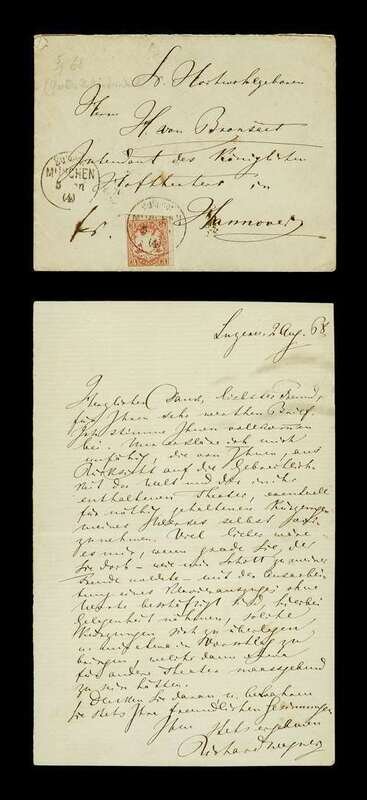 Sr. Hochwohlgeboren
Herrn
H von Bronsart
Intendant des Königlichen
Hoftheaters in
Hannover
fr.
MÜNCHEN
Luzern, 2 Aug. 68
Herzlichen Dank, liebster Freund,
für Ihren sehr werthen Brief.
Ich stimme Ihnen vollkommen
bei. Nur erkläre ich mich
unfähig, die von Ihnen, aus
Rücksicht auf die Gebrechlichkeit
der Welt und der in ihr
enthaltenen Theater, eventuell
für nöthig gehaltenen Kürzungen
meines Werkes selbst
zunehmen. Viel lieber wäre
es mir, wenn grade Sie, der
Sie doch – wie mir Schott zu meiner
Freude meldete – mit der Ausarbei-
tung eines Klavierauszuges ohne
Worte beschäftigt sind, hierbei
Gelegenheit nähmen, solche
Kürzungen sich zu überlegen
u. mir etwa in Vorschlag zu
bringen, welche dann
für andere Theater maassgebend
zu sein hätten.
Denken Sie daran u. bewahren
Sie stets Ihre freundlichen Gesinnungen
Ihrem stets ergebenen
Richard Wagner